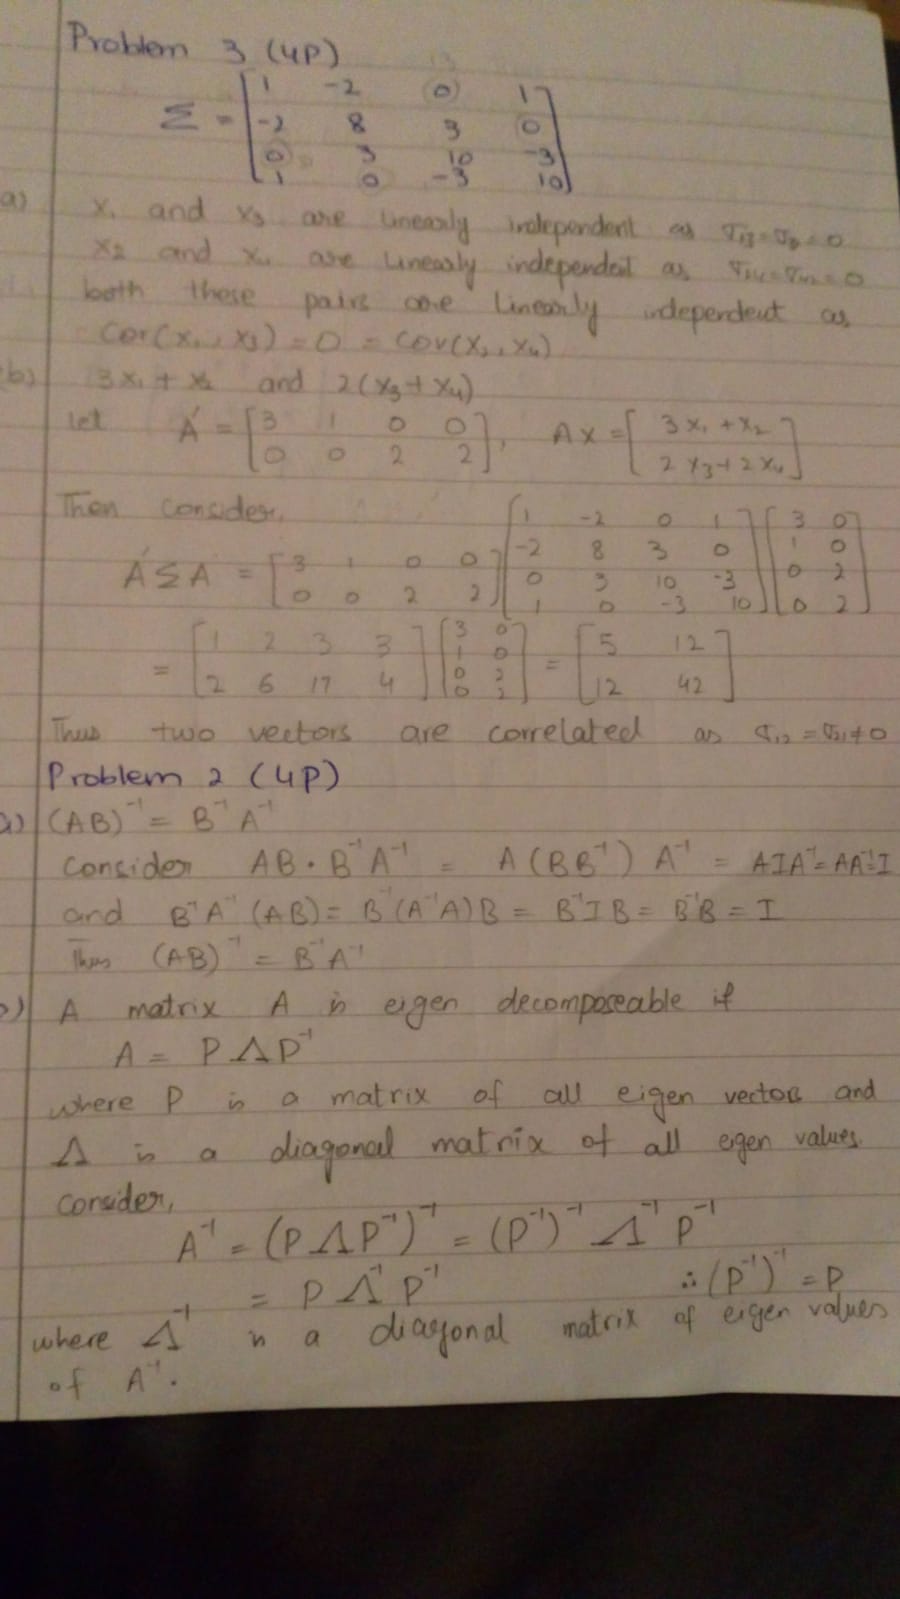 Problem 3 (4P)
Σ = [1 -2 0 1
-2 8 3 0
0 3 10 -3
1 0 -3 10]
a) x₁ and x₃ are linearly independent as = 0
x₂ and x₄ are linearly independent as = 0
both these pairs are linearly independent as
Cor(x₁, x₃) = 0 = Cov(x₂, x₄)
b) 3x₁ + x₂ and 2(x₃ + x₄)
let A' = [3 1 0 0
0 0 2 2], AX = [3x₁ + x₂
2x₃ + 2x₄]
Then consider,
A'ΣA = [3 1 0 0
0 0 2 2] [1 -2 0 1
-2 8 3 0
0 3 10 -3
1 0 -3 10] [3 0
1 0
0 2
0 2]
= [1 2 3 3
2 6 17 4] [3 0
1 0
0 2
0 2] = [5 12
12 42]
Thus two vectors are correlated as σ₁₂ = σ₂₁ ≠ 0
Problem 2 (4P)
a) (AB)⁻¹ = B⁻¹ A⁻¹
Consider AB · B⁻¹A⁻¹ = A(BB⁻¹) A⁻¹ = AIA⁻¹ = AA⁻¹ = I
and B⁻¹A⁻¹ (AB) = B⁻¹(A⁻¹A)B = B⁻¹IB = B⁻¹B = I
Thus (AB)⁻¹ = B⁻¹A⁻¹
A matrix A is eigen decomposeable if
A = PΛP⁻¹
where P is a matrix of all eigen vectors and
Λ is a diagonal matrix of all eigen values.
consider,
A⁻¹ = (PΛP⁻¹)⁻¹ = (P⁻¹)⁻¹ Λ⁻¹ P⁻¹
= P Λ⁻¹ P⁻¹ ∴ (P⁻¹)⁻¹ = P
where Λ⁻¹ is a diagonal matrix of eigen values
of A⁻¹.